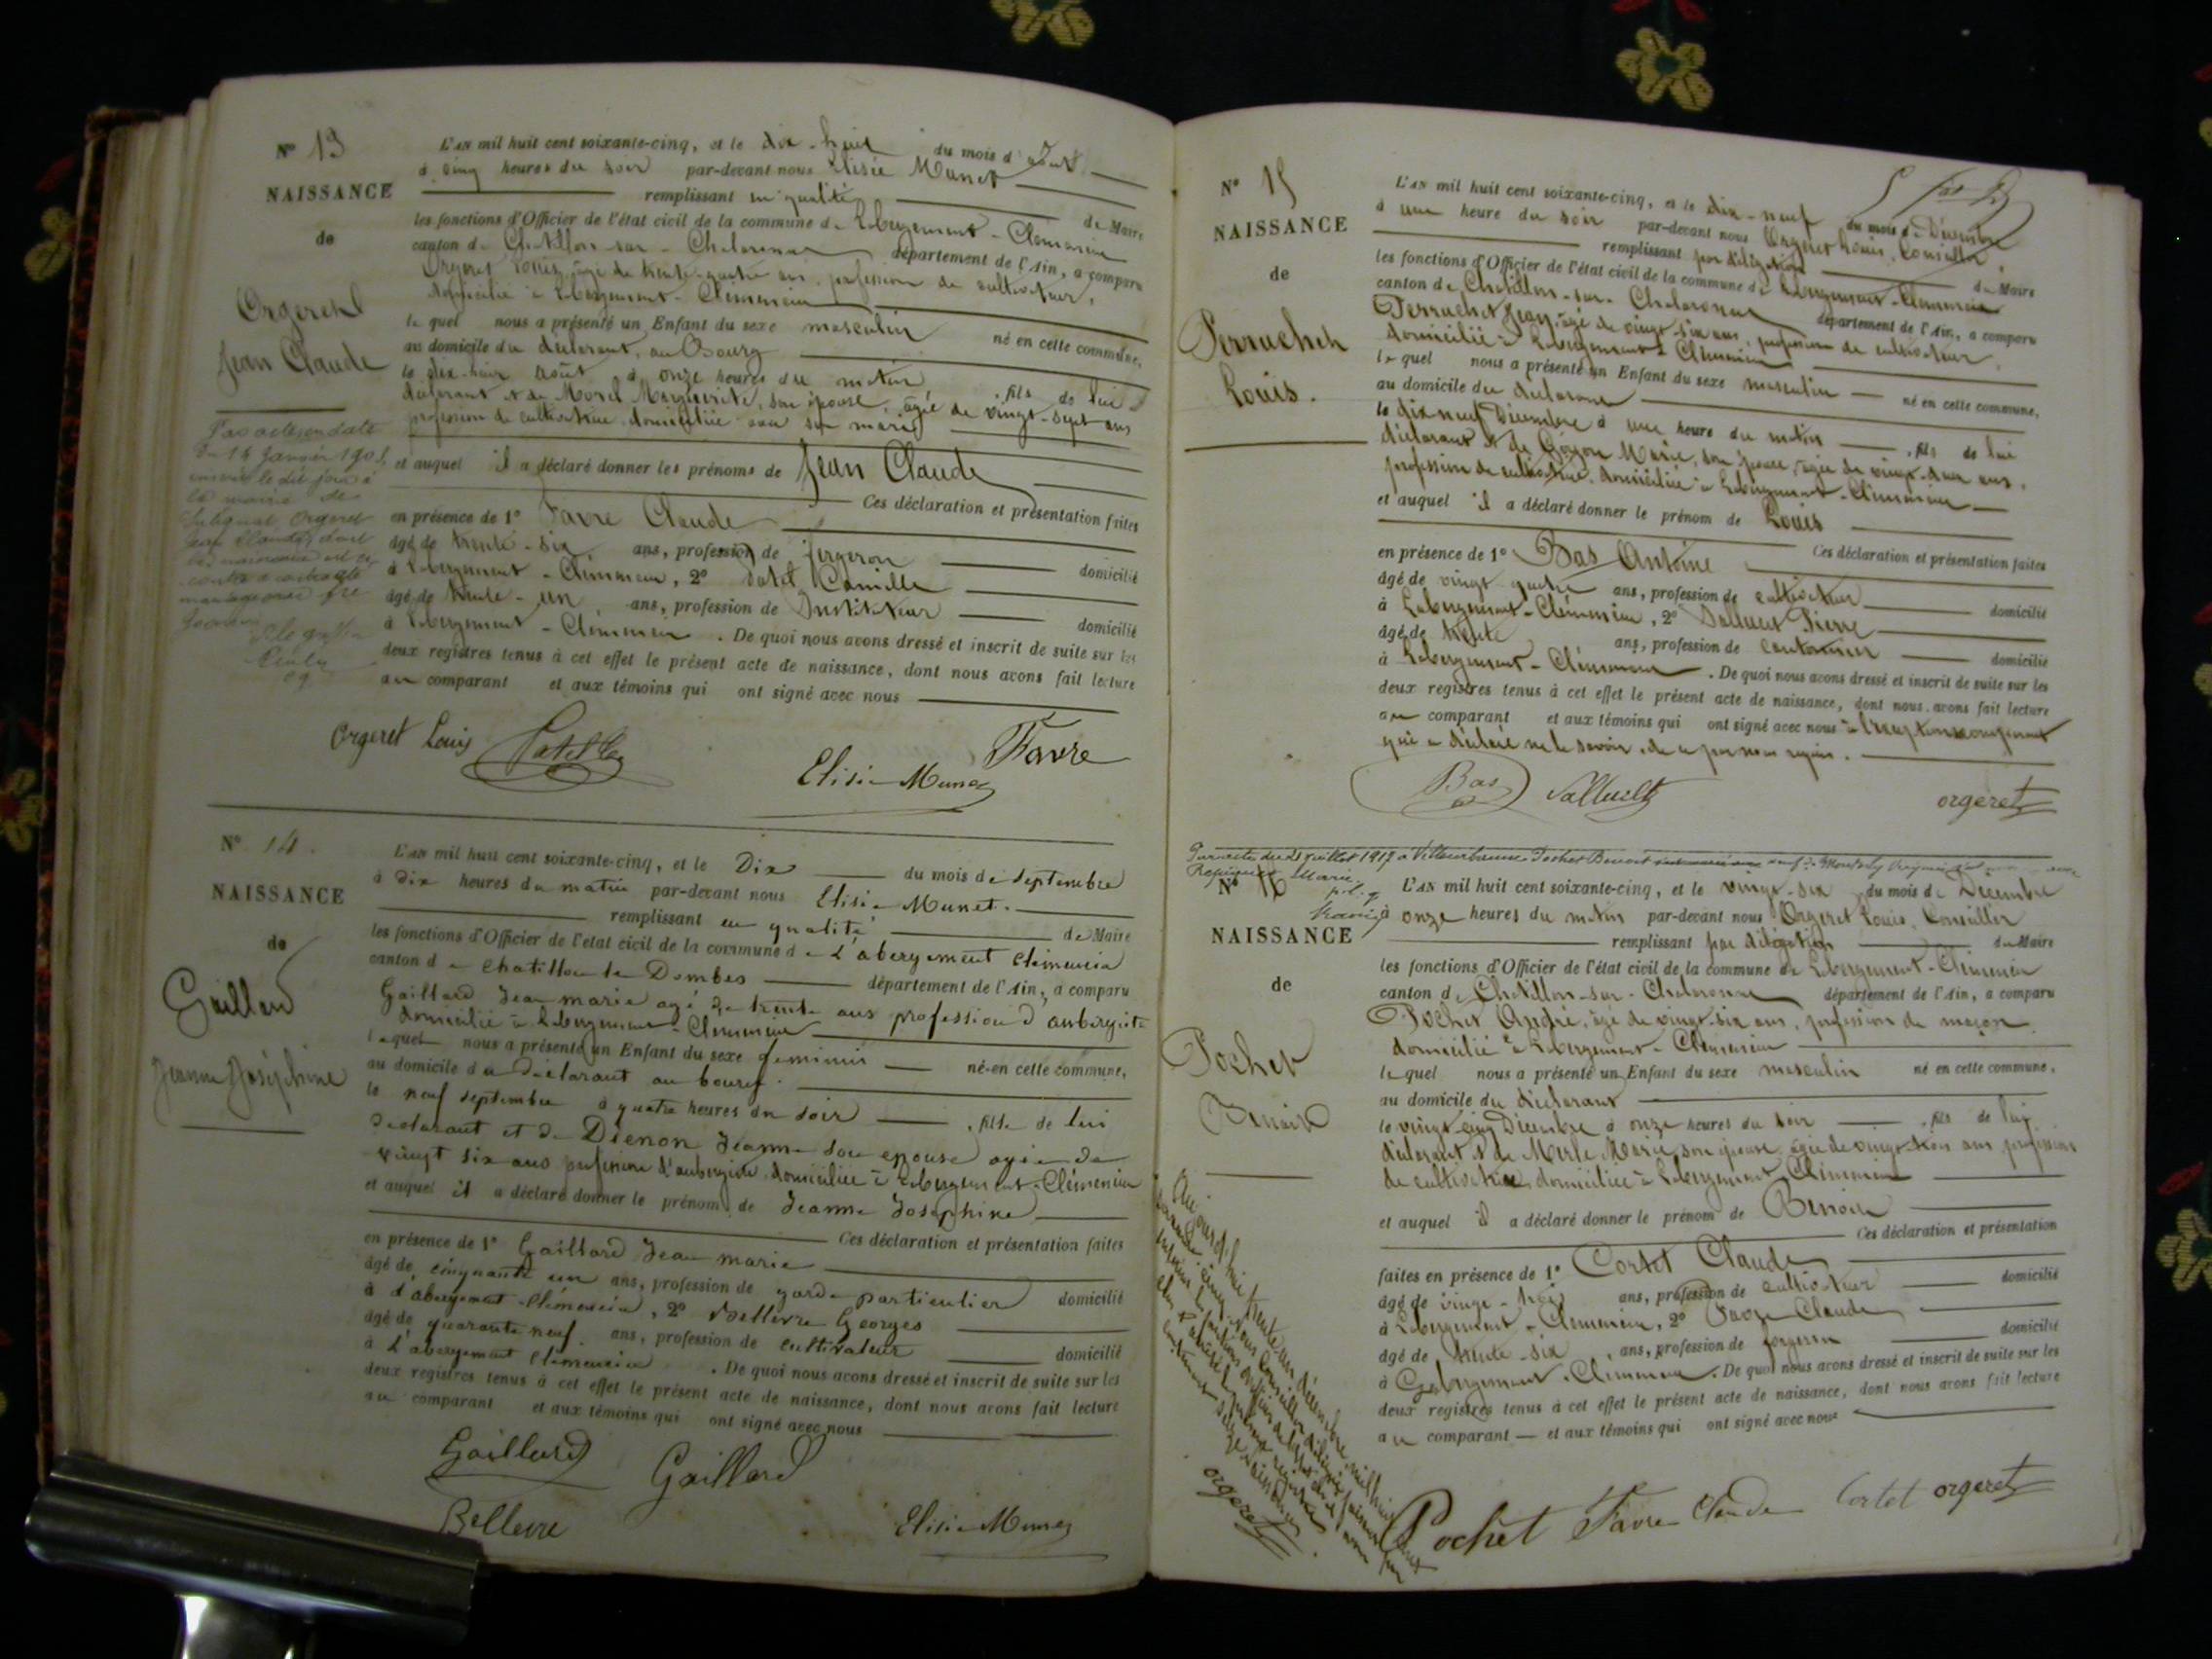 N° 13
NAISSANCE
de
Orgeret
Jean Claude
L'AN mil huit cent soixante-cinq, et le dix-huit du mois d'août
à cinq heures du soir par-devant nous Elisée Munet
remplissant en qualité de Maire
les fonctions d'Officier de l'état civil de la commune de Labergement-Clémencia
canton de Châtillon-sur-Chalaronne département de l'Ain, a comparu
Orgeret Louis, âgé de trente-quatre ans, profession de cultivateur,
domicilié à Labergement-Clémencia
lequel nous a présenté un Enfant du sexe masculin né en cette commune,
au domicile du déclarant, au Bourg
le dix-huit août à onze heures du matin, fils de lui
déclarant et de Morel Marguerite, son épouse, âgée de vingt-sept ans
profession de cultivatrice domiciliée avec son mari
et auquel il a déclaré donner les prénoms de Jean Claude
Ces déclaration et présentation faites
en présence de 1° Favre Claude
âgé de trente-six ans, profession de forgeron domicilié
à Labergement-Clémencia, 2° Camille
âgé de trente-un ans, profession de Instituteur domicilié
à Labergement-Clémencia. De quoi nous avons dressé et inscrit de suite sur les
deux registres tenus à cet effet le présent acte de naissance, dont nous avons fait lecture
au comparant et aux témoins qui ont signé avec nous
Orgeret Louis
Favre
Elisée Munet
Par acte en date
du 14 janvier 190
le dit jour à
la mairie de
Orgeret
Jean Claude, dont
la naissance est ci
contre a contracté
mariage avec
N° 14.
NAISSANCE
de
Gaillard
Jeanne Joséphine
L'AN mil huit cent soixante-cinq, et le Dix du mois de septembre
à dix heures du matin par-devant nous Elisée Munet.
remplissant en qualité de Maire
les fonctions d'Officier de l'état civil de la commune de L'abergement clémencia
canton de Chatillon les Dombes département de l'Ain, a comparu
Gaillard Jean marie agé de trente ans profession d'aubergiste
domicilié à Labergement-Clémencia
lequel nous a présenté un Enfant du sexe feminin né en cette commune,
au domicile du declarant au bourg.
le neuf septembre à quatre heures du soir, fille de lui
declarant et de Dienon Jeanne son epouse agée de
vingt six ans profession d'aubergiste, domiciliée à Labergement-Clémencia
et auquel il a déclaré donner le prénom de Jeanne Josephine
Ces déclaration et présentation faites
en présence de 1° Gaillard Jean marie
âgé de cinquante un ans, profession de garde particulier domicilié
à L'abergement-clémencia, 2° Bellevre Georges
âgé de quarante neuf ans, profession de cultivateur domicilié
à L'abergement clémencia. De quoi nous avons dressé et inscrit de suite sur les
deux registres tenus à cet effet le présent acte de naissance, dont nous avons fait lecture
au comparant et aux témoins qui ont signé avec nous
Gaillard Gaillard
Bellevre Elisée Munet
N° 15
NAISSANCE
de
Perruchet
Louis.
L'AN mil huit cent soixante-cinq, et le dix-neuf du mois de Décembre
à une heure du soir par-devant nous Orgeret Louis, Conseiller,
remplissant par délégation de Maire
les fonctions d'Officier de l'état civil de la commune de Labergement-Clémencia
canton de Châtillon-sur-Chalaronne département de l'Ain, a comparu
Perruchet Jean, âgé de vingt-six ans, profession de cultivateur,
domicilié à Labergement-Clémencia
lequel nous a présenté un Enfant du sexe masculin né en cette commune,
au domicile du déclarant
le dix-neuf Décembre à une heure du matin, fils de lui
déclarant et de Marie, son épouse, âgée de vingt-deux ans,
profession de cultivatrice, domiciliée à Labergement-Clémencia
et auquel il a déclaré donner le prénom de Louis
Ces déclaration et présentation faites
en présence de 1° Bas Antoine
âgé de vingt quatre ans, profession de cultivateur domicilié
à Labergement-Clémencia, 2° Salluet Pierre
âgé de trente ans, profession de cantonnier domicilié
à Labergement-Clémencia. De quoi nous avons dressé et inscrit de suite sur les
deux registres tenus à cet effet le présent acte de naissance, dont nous avons fait lecture
au comparant et aux témoins qui ont signé avec nous à l'exception comparant
qui a déclaré ne le savoir, de ce par nous requis.
Bas orgeret
juillet 1919 à Villeurbanne Pochet Benoit
Marie
N° 16
NAISSANCE
de
Pochet
Benoit
L'AN mil huit cent soixante-cinq, et le vingt-six du mois de Décembre
à onze heures du matin par-devant nous Orgeret Louis, Conseiller
remplissant par délégation de Maire
les fonctions d'Officier de l'état civil de la commune de Labergement-Clémencia
canton de Châtillon-sur-Chalaronne département de l'Ain, a comparu
Pochet André, âgé de vingt-six ans, profession de maçon
domicilié à Labergement-Clémencia
lequel nous a présenté un Enfant du sexe masculin né en cette commune,
au domicile du déclarant
le vingt-cinq Décembre à onze heures du soir, fils de lui
déclarant et de Merle Marie, son épouse, âgée de vingt-trois ans profession
de cultivatrice, domiciliée à Labergement Clémencia
et auquel il a déclaré donner le prénom de Benoit
Ces déclaration et présentation
faites en présence de 1° Cortet Claude
âgé de vingt-trois ans, profession de cultivateur domicilié
à Labergement-Clémencia, 2° Favre Claude
âgé de trente-six, ans, profession de forgeron domicilié
à Labergement-Clémencia. De quoi nous avons dressé et inscrit de suite sur les
deux registres tenus à cet effet le présent acte de naissance, dont nous avons fait lecture
au comparant et aux témoins qui ont signé avec nous
Pochet Favre Claude Cortet orgeret
Aujourd'hui trente un décembre mil huit cent
orgeret